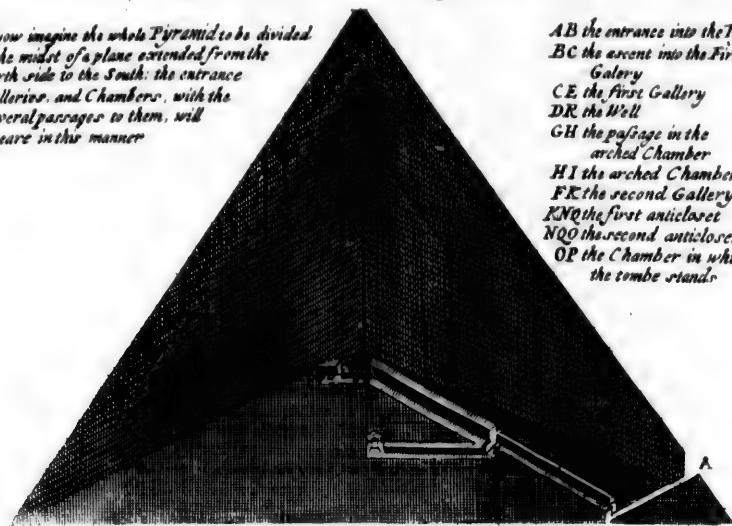 now imagine the whole Pyramid to be divided
the midst of a plane extended from the
rth side to the South: the entrance
lleries, and Chambers, with the
veral passages to them, will
eare in this manner
AB the entrance into the
BC the ascent into the Fir
Galery
CE the first Gallery
DR the Well
GH the paſsage in the
arched Chamber
HI the arched Chamber
FK the second Gallery
KNQ the first anticloset
NQO the second anticloset
OP the Chamber in whi
the tombe stands
A